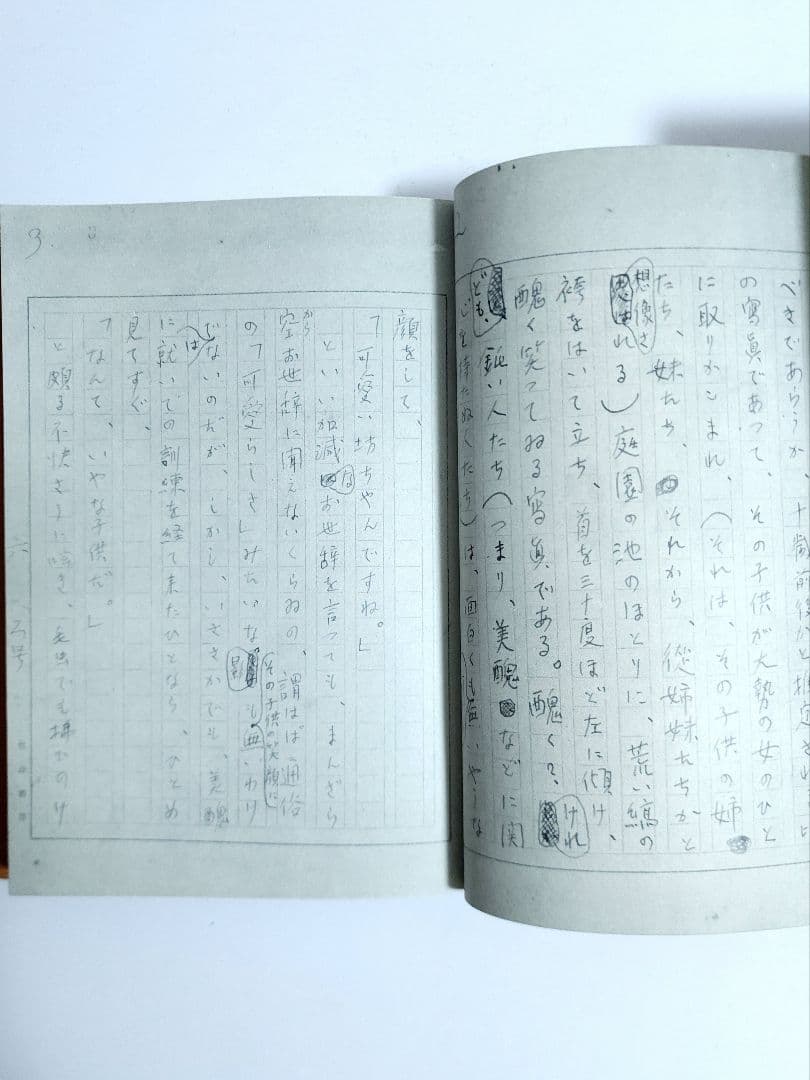 2
べきであらうか、十歳前後かと推定され
の寫眞であつて、その子供が大勢の女のひと
に取りかこまれ、(それは、その子供の姉
たち、妹たち、それから、從姉妹たちかと
想像される)庭園の池のほとりに、荒い縞の
袴をはいて立ち、首を三十度ほど左に傾け、
醜く笑つてゐる寫眞である。醜く?、けれ
ども、鈍い人たち(つまり、美醜などに関
心を持たぬ人たち)は、面白くも無いやうな
3.
顔をして、
「可愛い坊ちやんですね。」
といい加減なお世辞を言つても、まんざら
空お世辞に聞えないくらゐの、謂はば通俗
の「可愛らしさ」みたいな影もその子供の笑顔に無いわけ
ではないのだが、しかし、いささかでも、美醜
に就いての訓練を経て来たひとなら、ひとめ
見てすぐ、
「なんて、いやな子供だ。」
と頗る不快さうに呟き、毛虫でも拂ひのけ